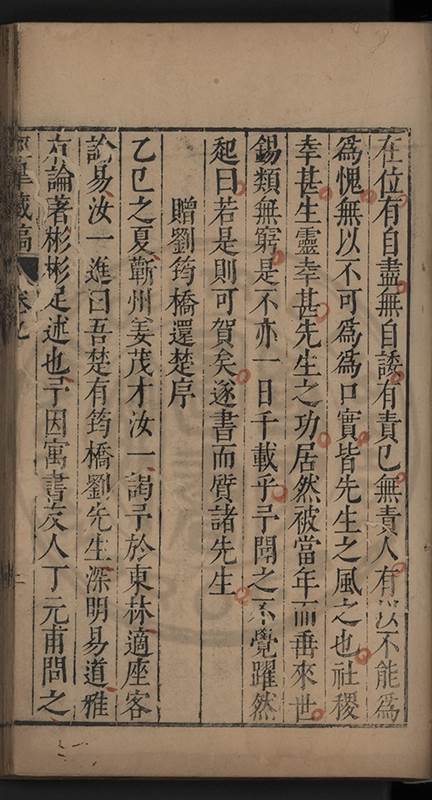 在位有自盡無自諉有責己無責人有以不能爲
爲愧無以不可爲爲口實皆先生之風之也社稷
幸甚生靈幸甚先生之功居然被當年而垂來世
錫類無窮是不亦一日千載乎予聞之不覺躍然
起曰若是則可賀矣遂書而質諸先生
贈劉筠橋還楚序
乙巳之夏蘄州姜茂才汝一謁予於東林適座客
論易汝一進曰吾楚有筠橋劉先生深明易道雅
亦論著彬彬足述也予因寓書友人丁元甫問之
藏稿
卷九